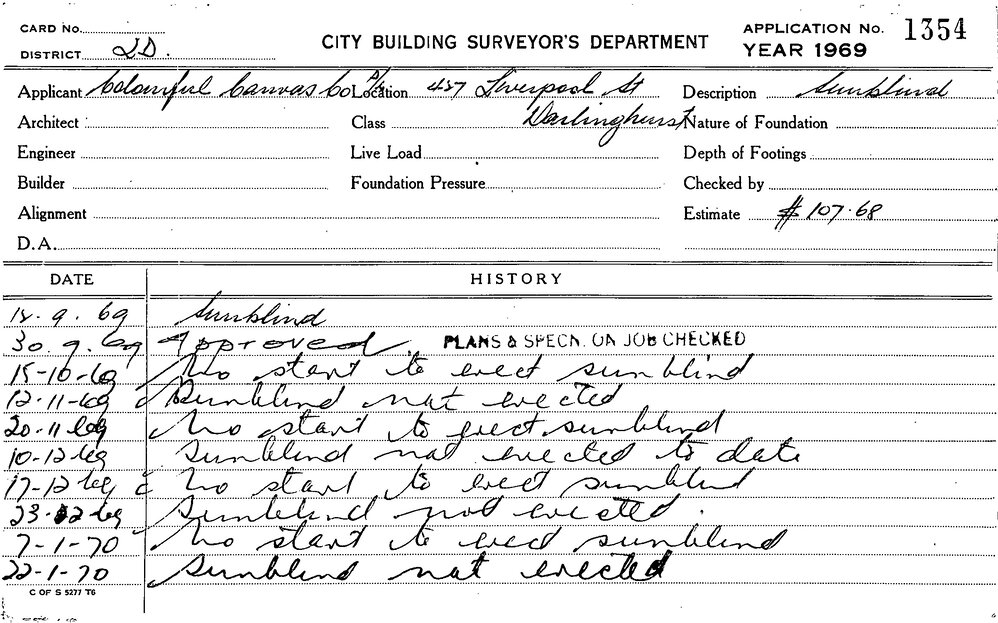 CARD No.
DISTRICT 2D.
CITY BUILDING SURVEYOR'S DEPARTMENT
APPLICATION No. 1354
YEAR 1969
Applicant Colourful Canvas Co P/L Location 427 Liverpool St Description Sunblind
Architect Class Darlinghurst Nature of Foundation
Engineer Live Load Depth of Footings
Builder Foundation Pressure Checked by
Alignment Estimate $107.68
D.A.
DATE HISTORY
18.9.69 Sunblind
30.9.69 Approved. PLANS & SPECN. ON JOB CHECKED
15-10-69 No start to erect sunblind
12-11-69 Sunblind not erected
20-11-69 No start to erect sunblind
10-12-69 Sunblind not erected to date
17-12-69 No start to erect sunblind
23-12-69 Sunblind not erected.
7-1-70 No start to erect sunblind
22-1-70 Sunblind not erected
C OF S 5277 T6